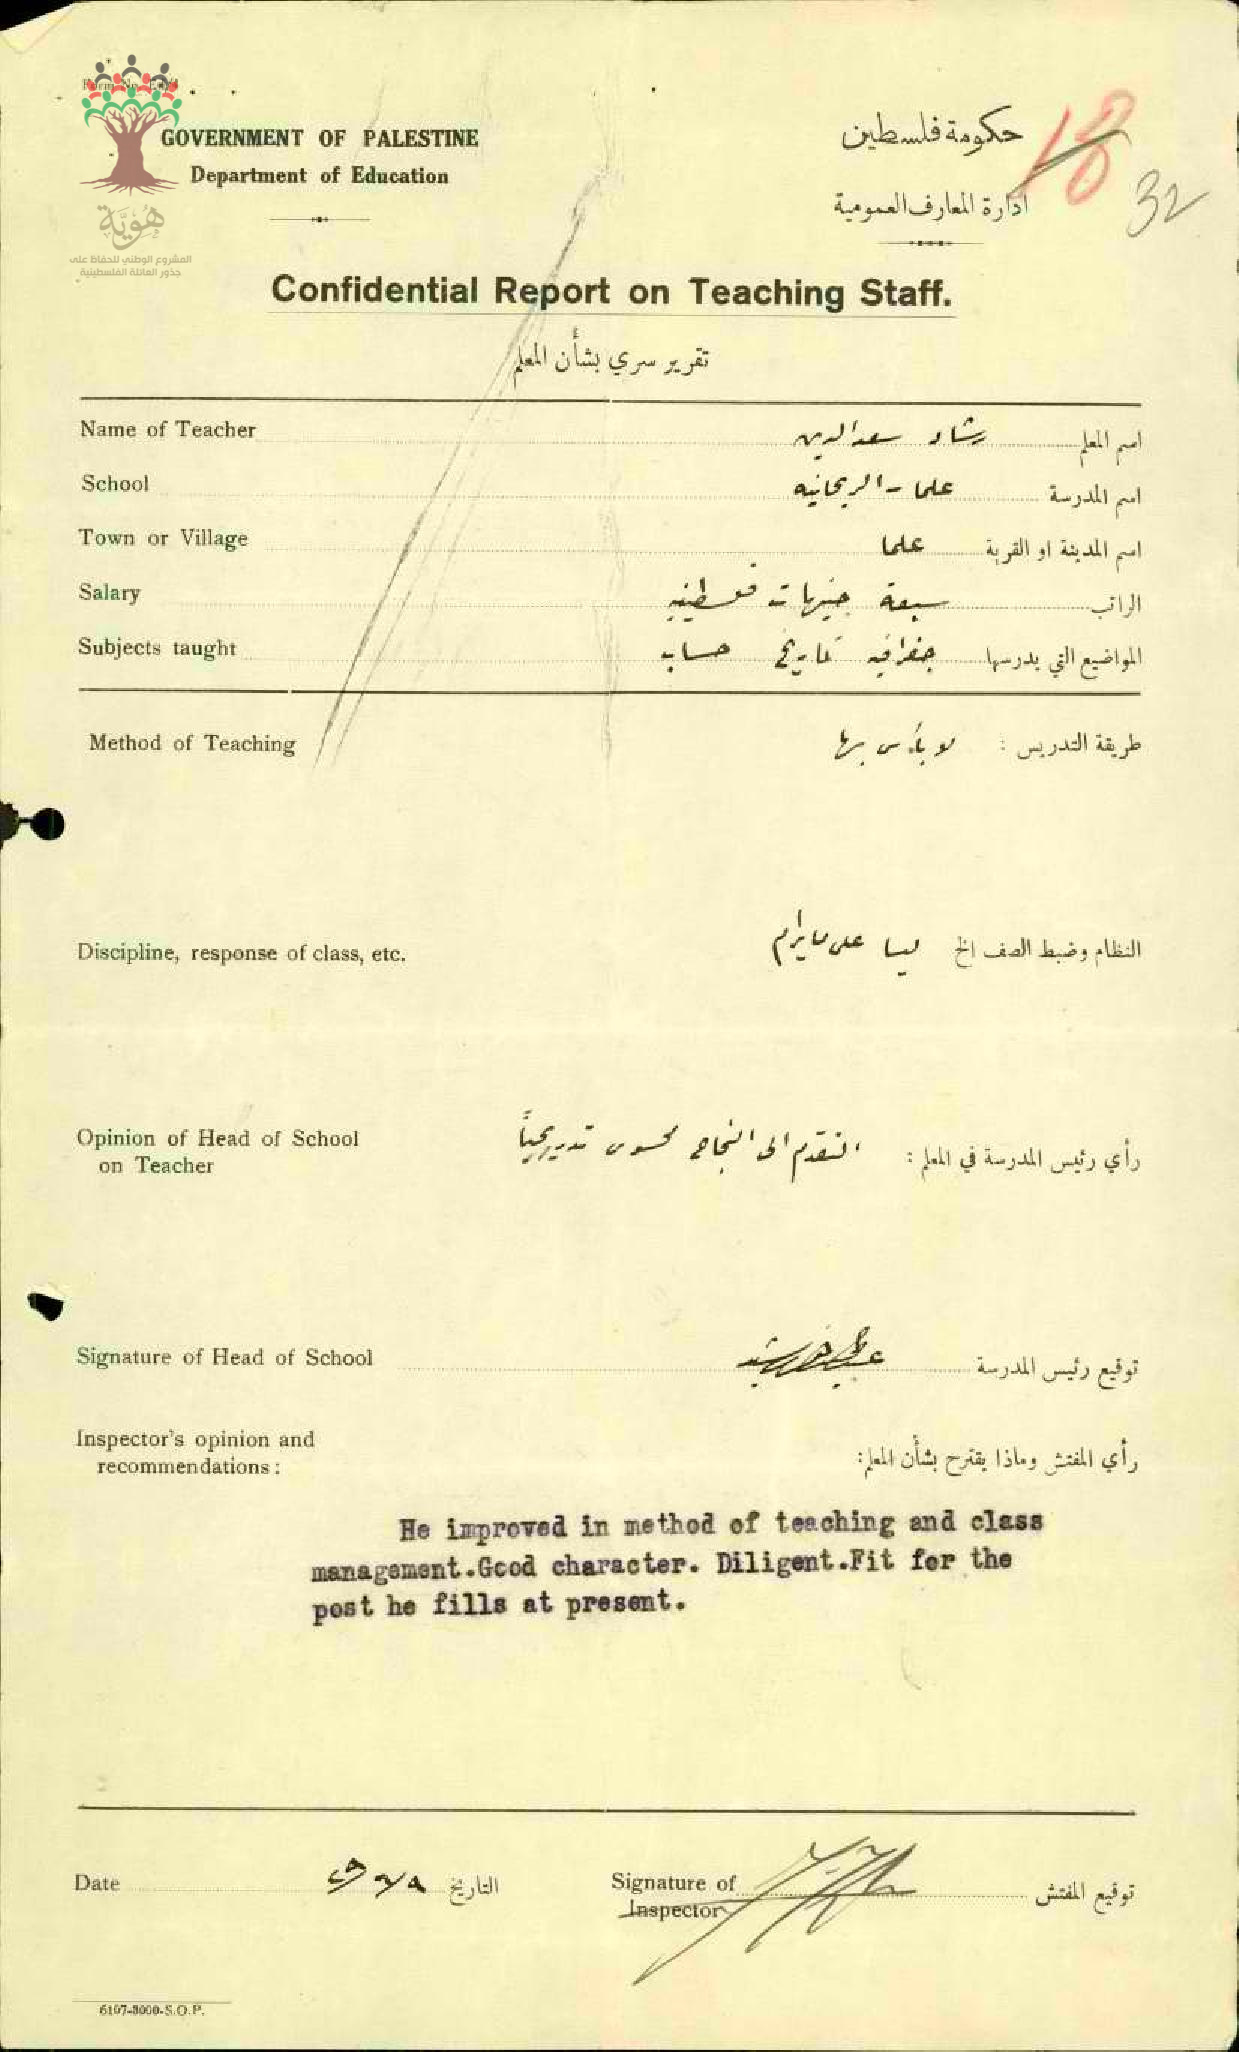 GOVERNMENT OF PALESTINE
Department of Education
حكومة فلسطين
ادارة المعارف العمومية
18
32
هُوِيَّة
المشروع الوطني للحفاظ على
جذور العائلة الفلسطينية
Confidential Report on Teaching Staff.
تقرير سري بشأن المعلم
Name of Teacher رشاد سعد الدين اسم المعلم
School علما - الريحانيه اسم المدرسة
Town or Village علما اسم المدينة او القرية
Salary سبعة جنيهات فلسطينيه الراتب
Subjects taught جغرافيه تاريخ حساب المواضيع التي يدرسها
Method of Teaching لا بأس بها طريقة التدريس :
Discipline, response of class, etc. ليسا على ما يرام النظام وضبط الصف الخ
Opinion of Head of School
on Teacher
رأي رئيس المدرسة في المعلم : التقدم الى النجاح محسوس تدريجياً
Signature of Head of School توقيع رئيس المدرسة
Inspector's opinion and
recommendations :
رأي المفتش وماذا يقترح بشأن المعلم:
He improved in method of teaching and class
management.Good character. Diligent.Fit for the
post he fills at present.
Date التاريخ
Signature of
Inspector
توقيع المفتش
6107-3000-S.O.P.